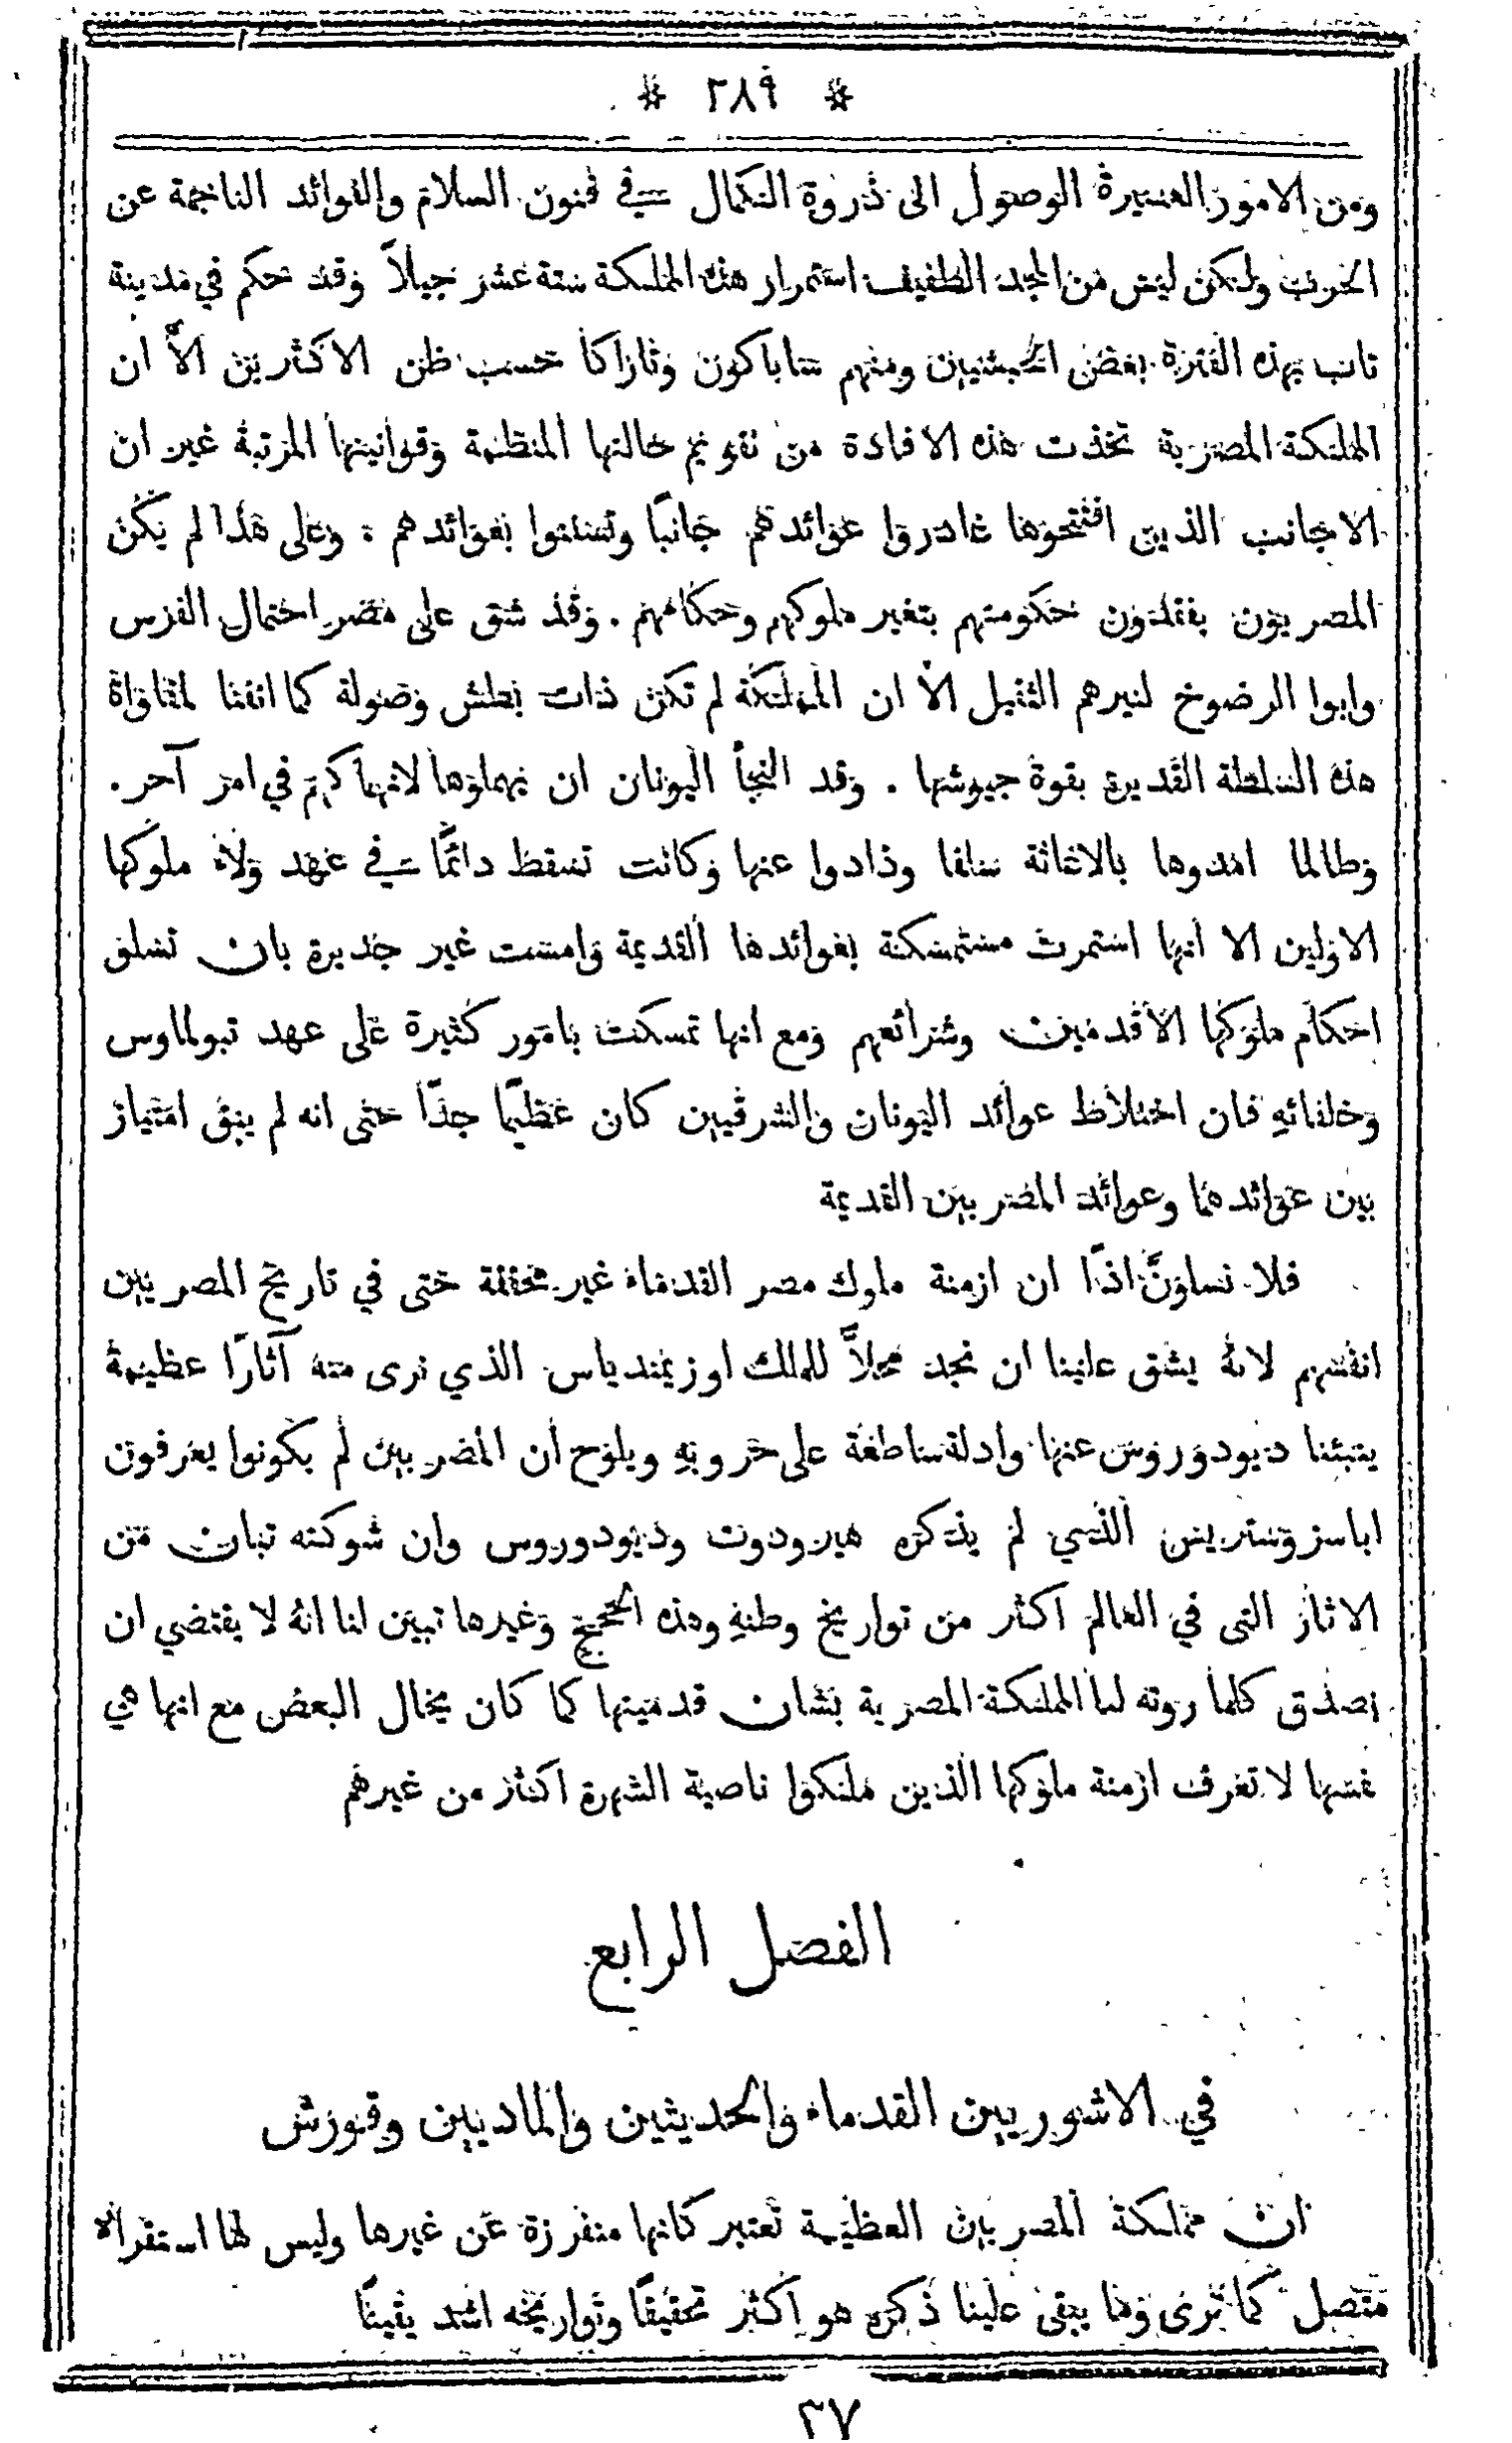 * ٢٨٩ *
ومن الامور العسيرة الوصول الى ذروة الكمال في فنون السلام والفوائد الناجمة عن
الحرب ولكن ليس من المجد الطفيف استمرار هذه المملكة ستة عشر جيلاً وقد حكم في مدينة
تاب بهذه الفترة بعض الحبشيين ومنهم ساباكون وثاراكا حسب ظن الاكثرين الاَّ ان
المملكة المصرية تخذت هذه الافادة من تقويم حالتها المنظمة وقوانينها المرتبة غير ان
الاجانب الذين افتتحوها غادروا عوائدهم جانبًا وتمسكوا بعوائدهم : وعلى هذا لم يكن
المصريون يفقدون حكومتهم بتغير ملوكهم وحكامهم . وقد شق على مصر احتمال الفرس
وابوا الرضوخ لنيرهم الثقيل الاَّ ان المملكة لم تكن ذات بطش وصولة كما انفنا لمقاواة
هذه السلطة القديرة بقوة جيوشها . وقد التجأ اليونان ان يهملوها لانهماكهم في امر آخر .
وطالما امدوها بالاغاثة سلفا وذادوا عنها وكانت تسقط دائمًا في عهد ولاء ملوكها
الاولين الا انها استمرت مستمسكة بعوائدها القديمة وامست غير جديرة بان تسلق
احكام ملوكها الاقدمين وشرائعهم ومع انها تمسكت بامور كثيرة على عهد تبولماوس
وخلفائهِ فان اختلاط عوائد اليونان والشرقيين كان عظيمًا جدًّا حتى انه لم يبق امتياز
بين عوائدهما وعوائد المصريين القديمة
فلا نساونَّ اذًا ان ازمنة ملوك مصر القدماء غير محققة حتى في تاريخ المصريين
انفسهم لانهُ يشق علينا ان نجد محلاًّ للملك اوزيمندياس الذي نرى منه آثارًا عظيمة
ينبئنا ديودوروس عنها وادلة ساطعة على حروبهِ ويلوح ان المصريين لم يكونوا يعرفون
اباسزوستريس الذي لم يذكره هيرودوت وديودوروس وان شوكته تبان من
الاثار التي في العالم اكثر من تواريخ وطنهِ وهذه الحجج وغيرها تبين لنا انهُ لا يقتضي ان
نصدق كلما روته لنا المملكة المصرية بشان قدميتها كما كان يخال البعض مع انها هي
نفسها لا تعرف ازمنة ملوكها الذين ملكوا ناصية الشهرة اكثر من غيرهم
الفصل الرابع
في الاشوريين القدماء والحديثين والماديين وقورش
ان مملكة المصريين العظيمة تعتبر كانها منفرزة عن غيرها وليس لها استقراء
متصل كما ترى وما يبقى علينا ذكره هو اكثر تحقيقًا وتواريخه اشد يقينًا
٣٧